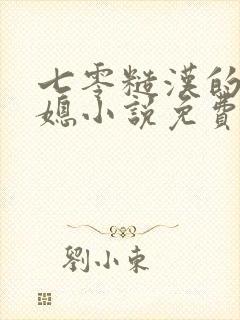 七零糙漢的
媳小説免費
劉小東